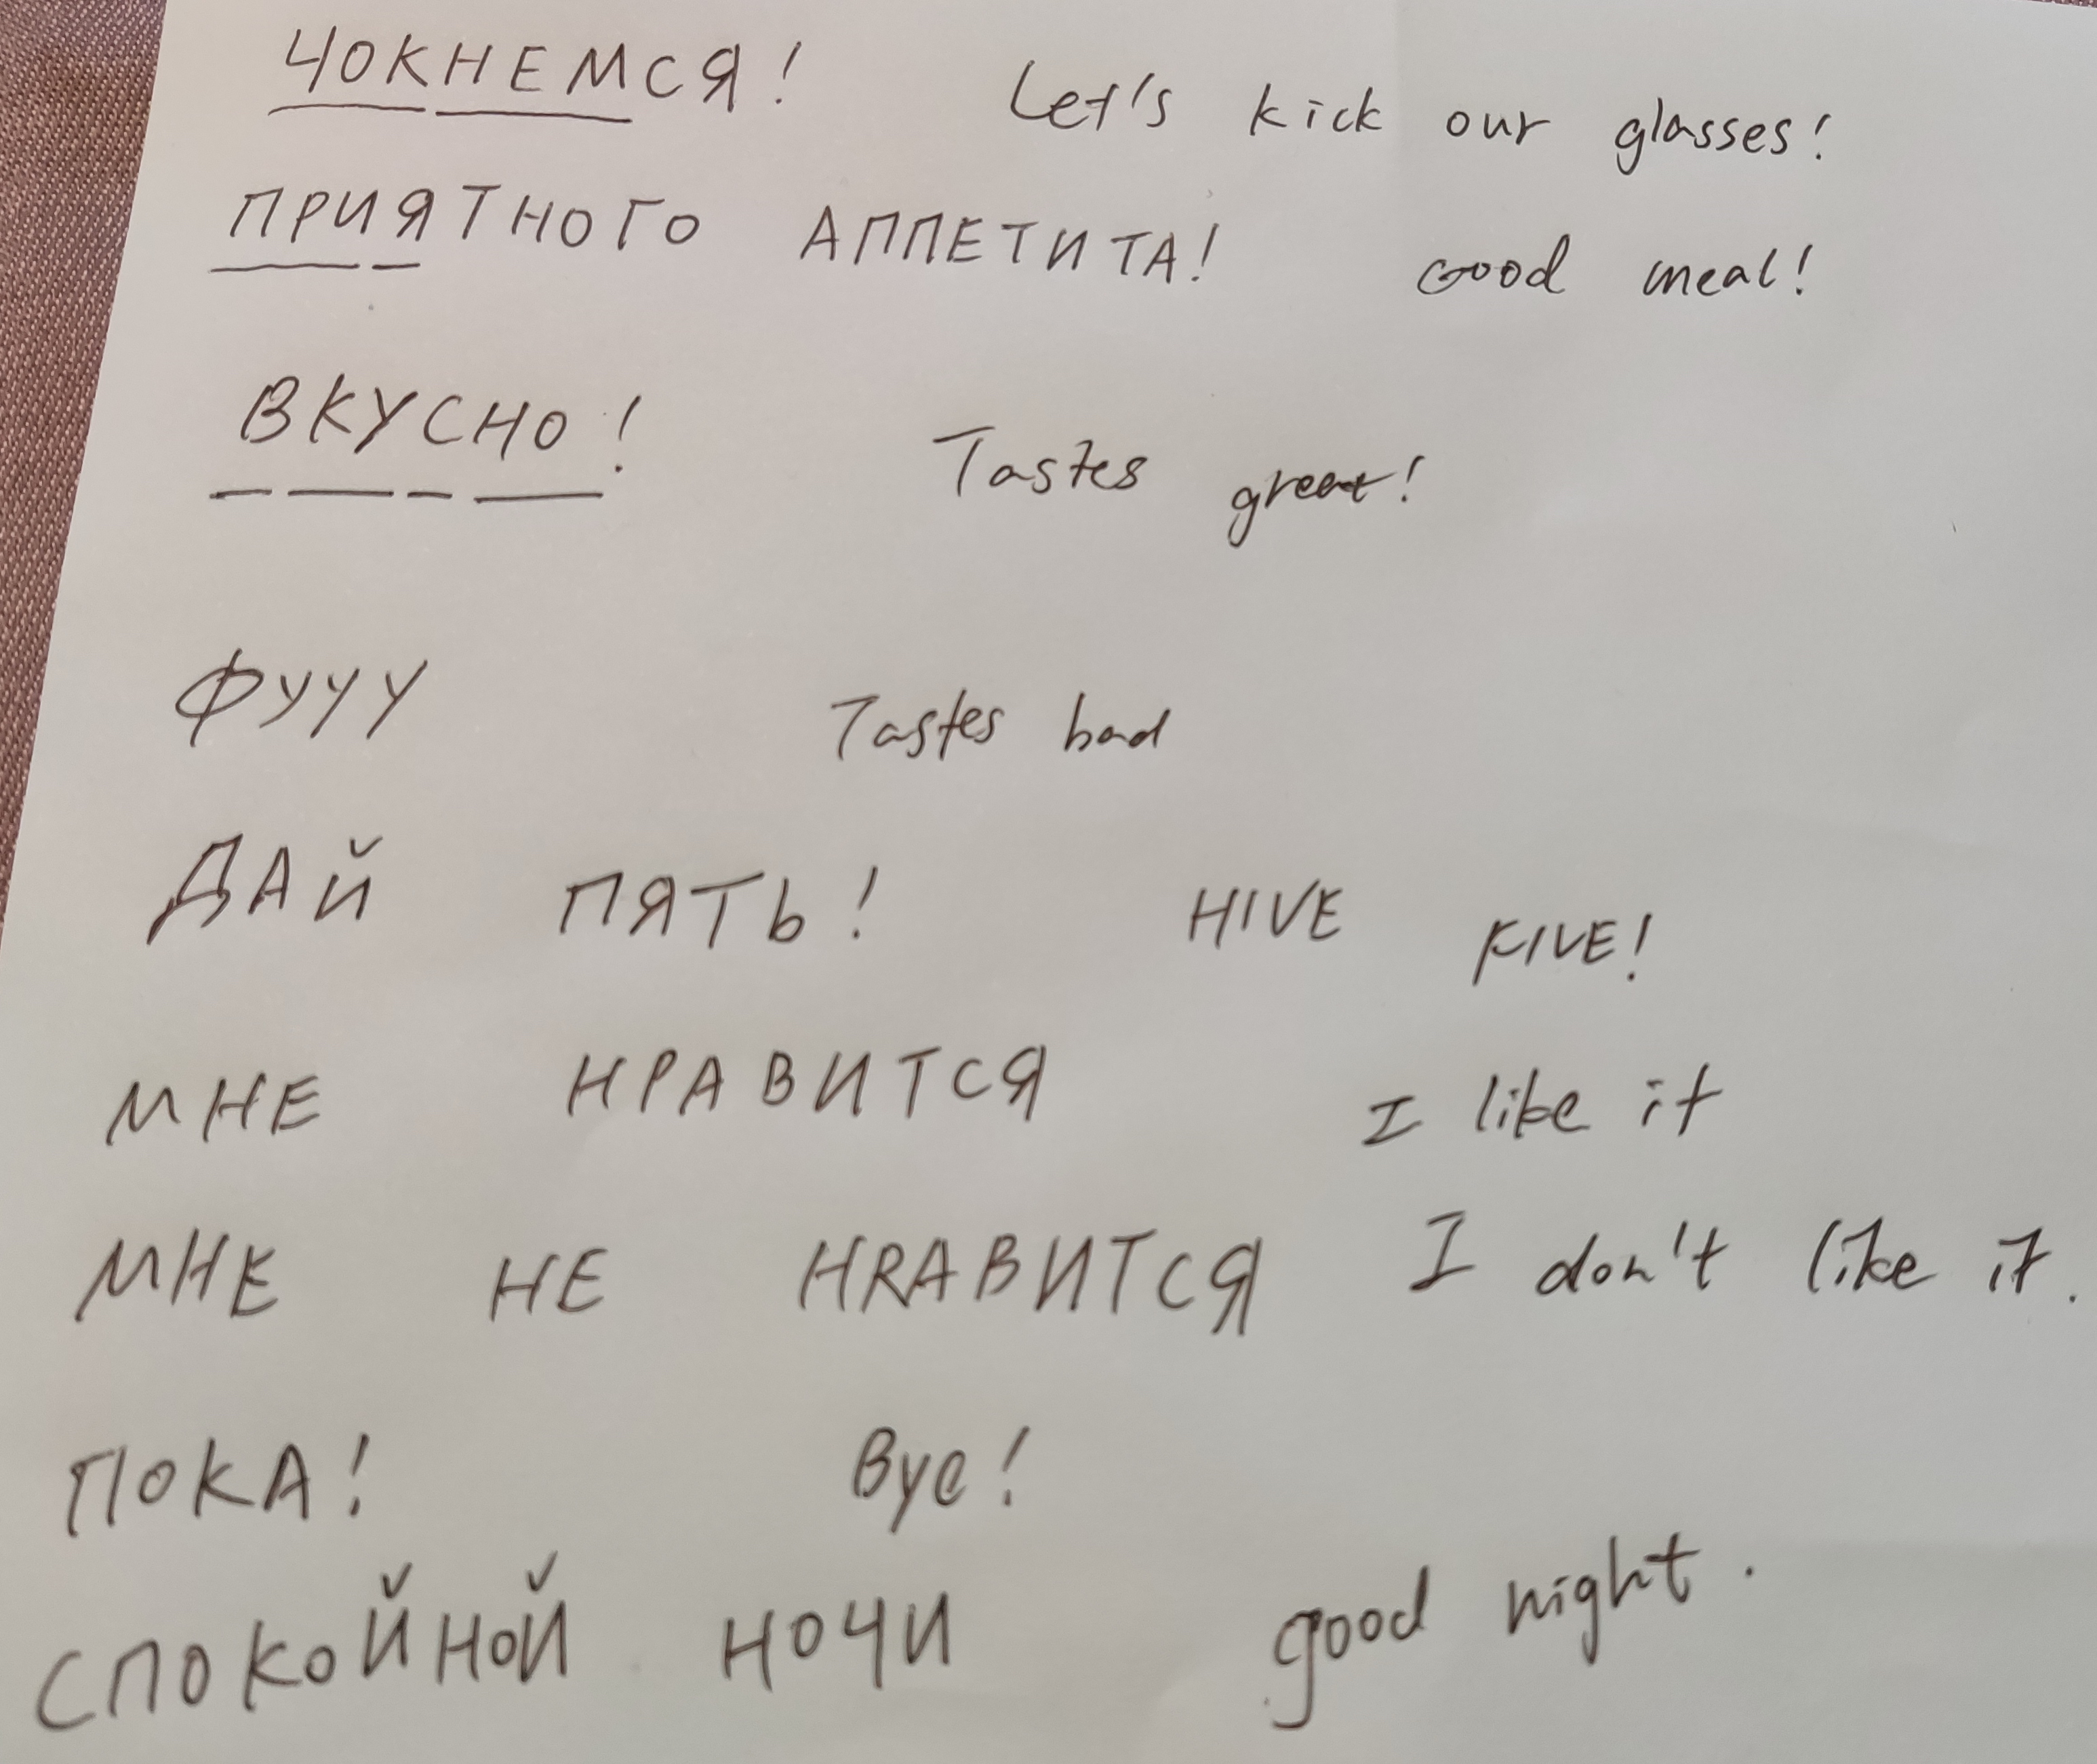 ЧОКНЕМСЯ! Let's kick our glasses!
ПРИЯТНОГО АППЕТИТА! Good meal!
ВКУСНО! Tastes great!
ФУУУ Tastes bad
ДАЙ ПЯТЬ! HIVE FIVE!
МНЕ НРАВИТСЯ I like it
МНЕ НЕ НRАВИТСЯ I don't like it.
ПОКА! Bye!
СПОКОЙНОЙ НОЧИ good night.